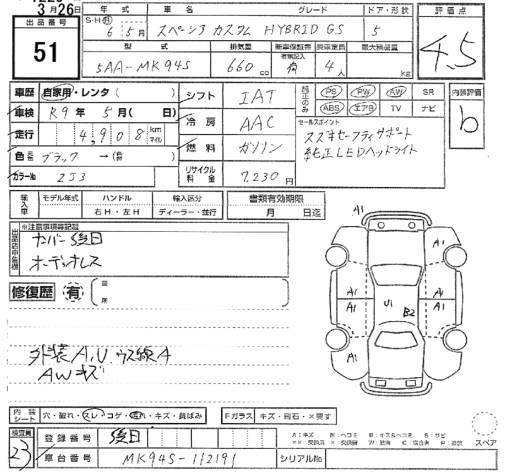 3月26日
出品番号
51
年式 車名 グレード ドア・形状
S・H・R 6年5月 スペーシア カスタム HYBRID GS 5
評価点
4.5
型式 排気量 新車保証書 乗車定員 最大積載量
有無記入
5AA-MK94S 660cc 有 4人 kg
車歴 自家用・レンタ( )
車検 R9年5月( 日)
走行 4,908 km マイル
色 ブラック →( )
カラーNo ZJ3
シフト IAT
冷房 AAC
燃料 ガソリン
リサイクル料金 7,230円
純正のみ
PS PW AW SR
ABS エアB TV ナビ
内装評価
b
セールスポイント
スズキセーフティサポート
純正LEDヘッドライト
輸入車 モデル年式 ハンドル 輸入区分
右H・左H ディーラー・並行
書類有効期限
月 日迄
※注意事項等記載
出品店申告欄
ナンバー後日
オーディオレス
修復歴 有
箇所
A1
A1 A1
A1 A1
U1 B2
A1 A1
外装A,U,ウス線A
AWキズ
内装シート 穴・破れ・スレ・コゲ・汚れ・キズ・員ばみ
Fガラス キズ・飛石・×要す
検査員
23
登録番号 後日
車台番号 MK94S-112191 シリアルNo
スペア